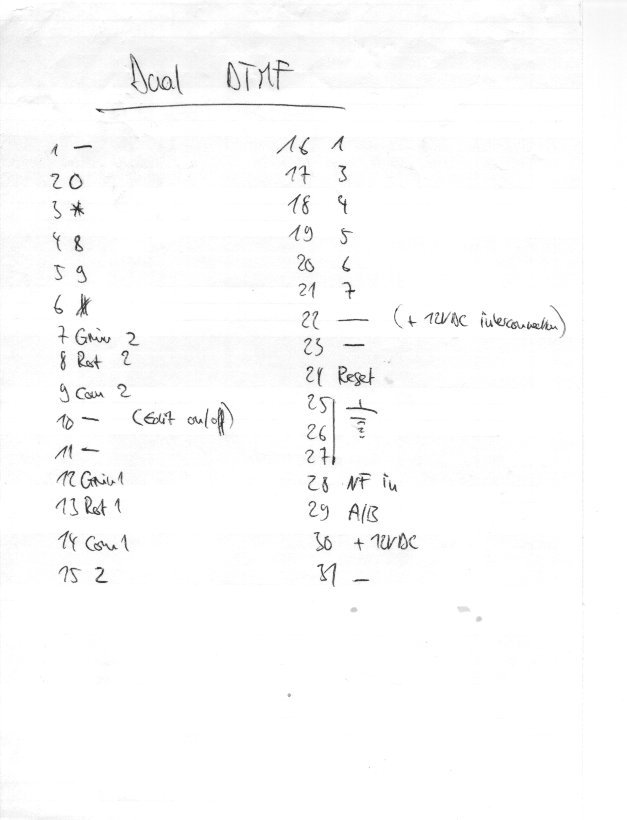 Dual DTMF
1 —
2 0
3 *
4 8
5 9
6 #
7 2
8 Rest 2
9 Com 2
10 — (Edit on/off)
11 —
12
13 Rest 1
14 Com 1
15 2
16 1
17 3
18 4
19 5
20 6
21 7
22 — (+ 12VDC interconnection)
23 —
24 Reset
25
26
27
28 NF in
29 A/B
30 + 12VDC
31 —